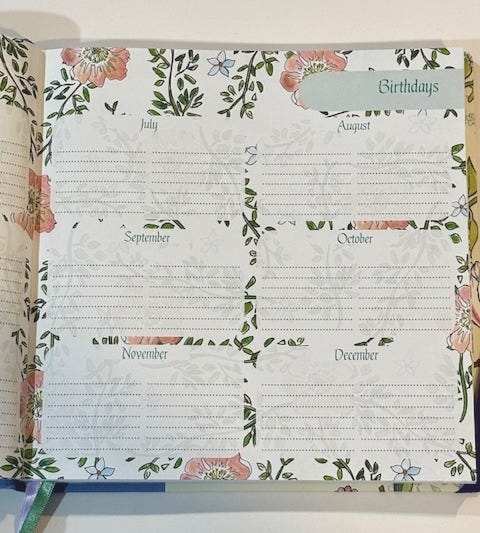 Birthdays
July
August
September
October
November
December